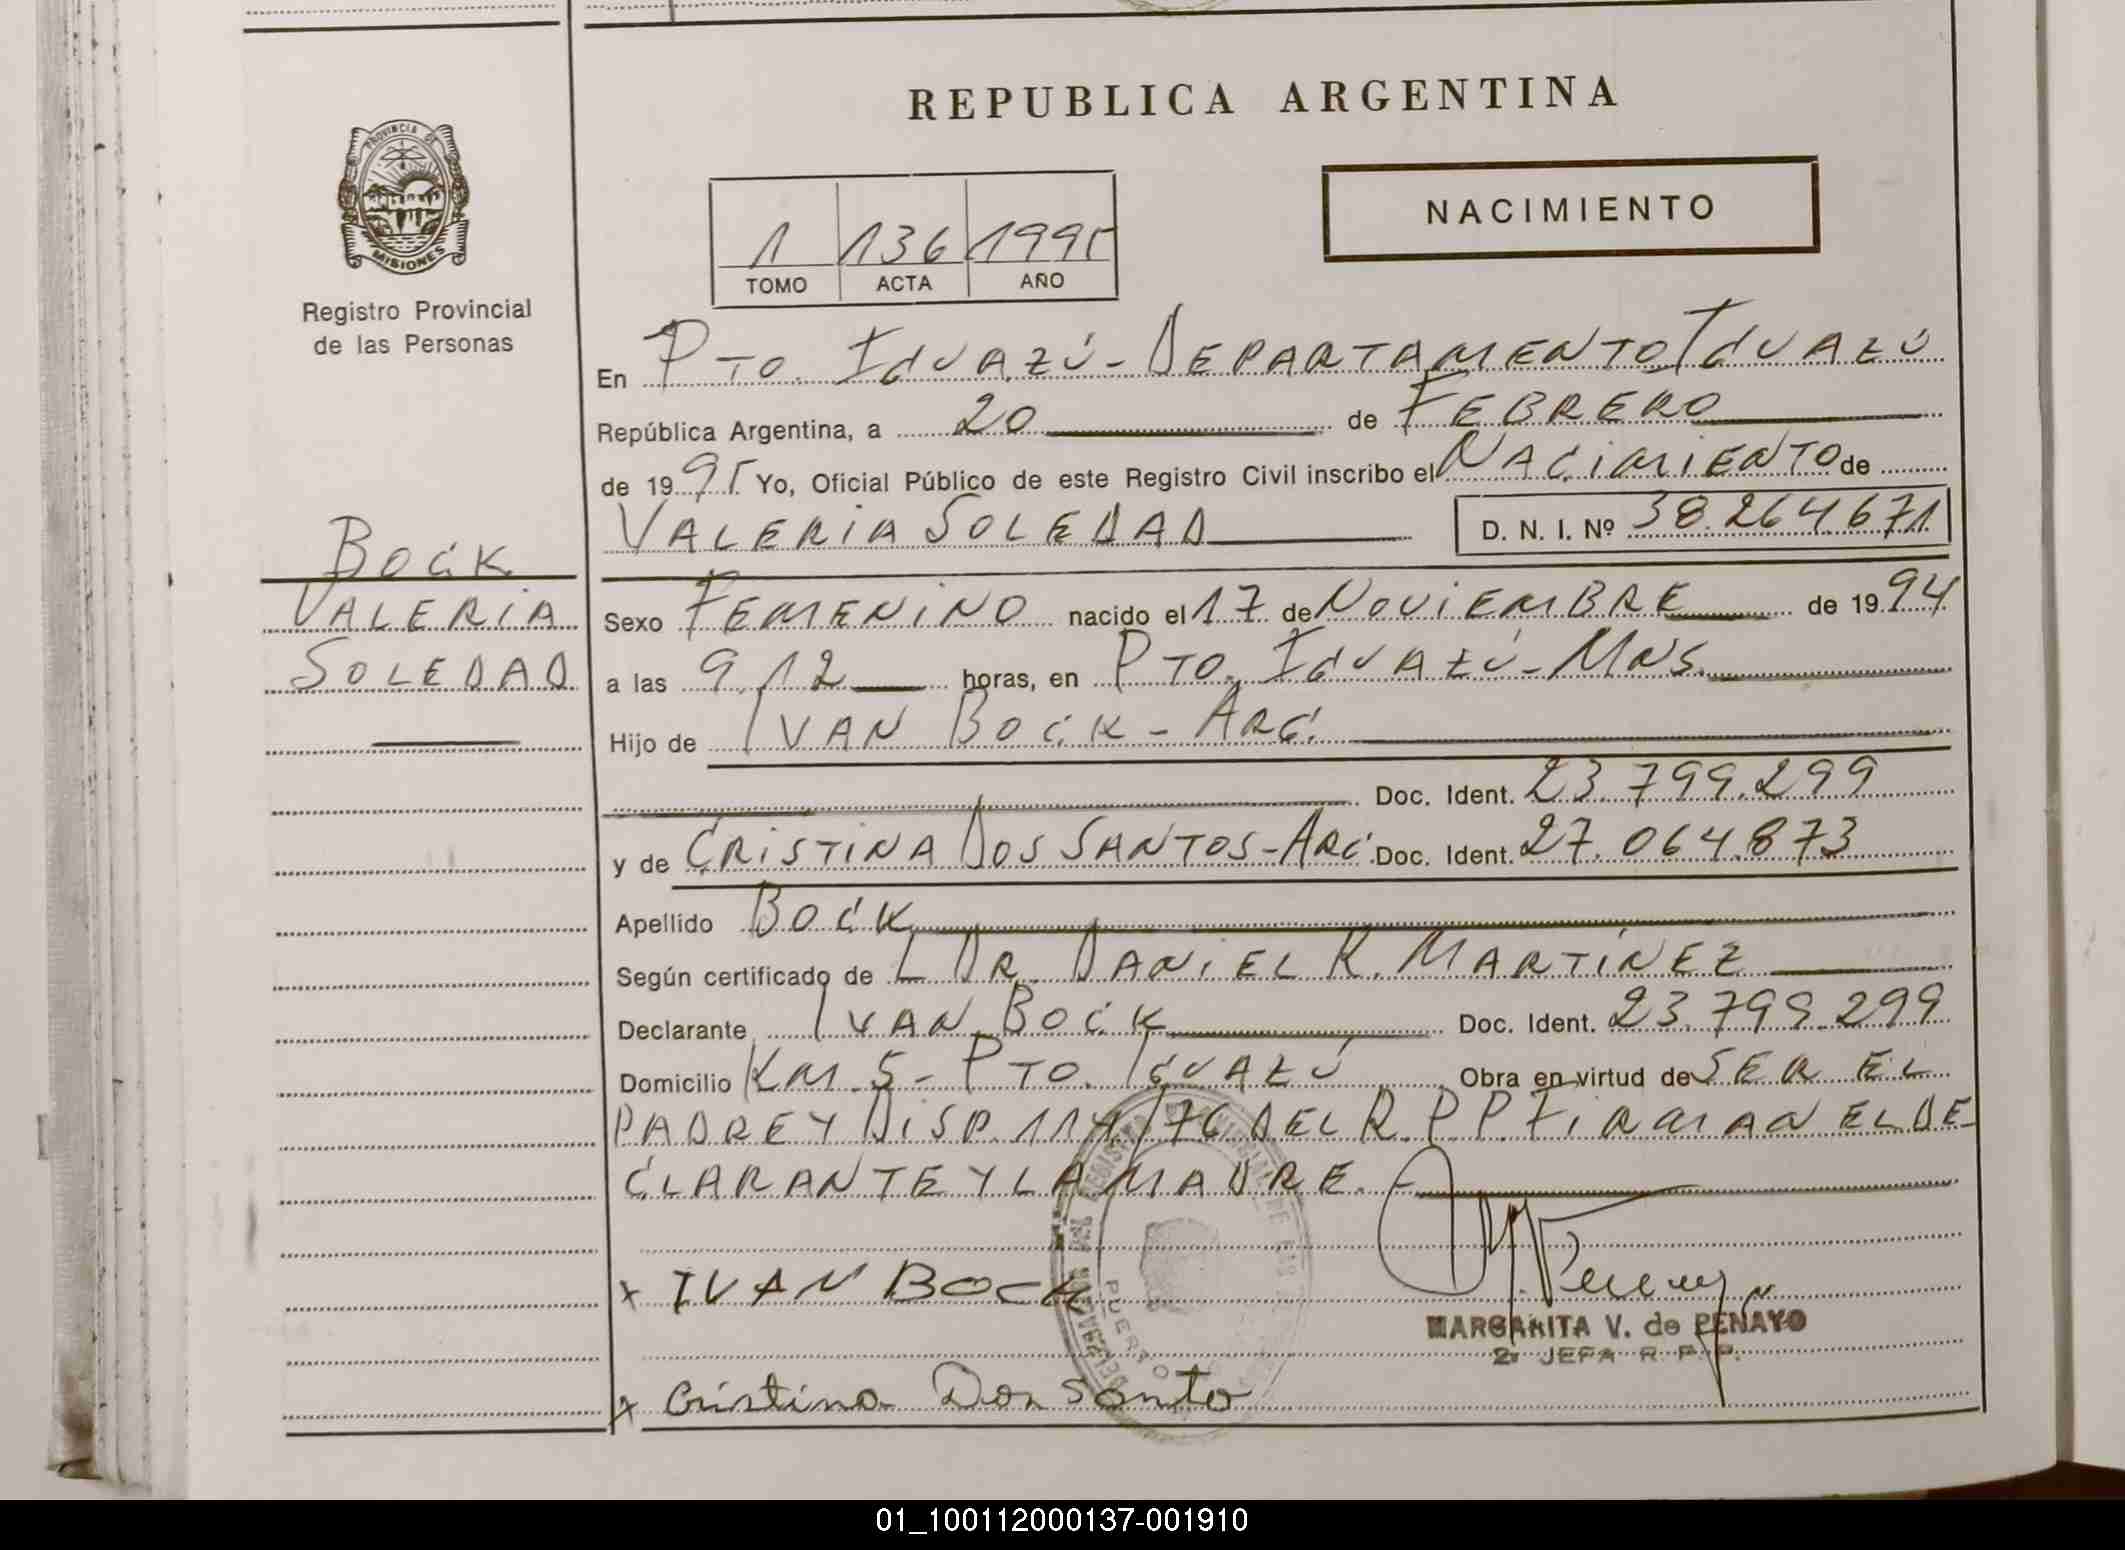 REPUBLICA ARGENTINA
PROVINCIA DE
MISIONES
Registro Provincial
de las Personas
NACIMIENTO
1 136 1995
TOMO ACTA AÑO
En Pto. Iguazú - Departamento Iguazú
República Argentina, a 20 de Febrero
de 1995 Yo, Oficial Público de este Registro Civil inscribo el Nacimiento de
Valeria Soledad D. N. I. Nº 38.264.671
Bock
Valeria
Soledad
Sexo Femenino nacido el 17 de Noviembre de 1994
a las 9,12 horas, en Pto. Iguazú - Mns.
Hijo de Ivan Bock - Arg.
Doc. Ident. 23.799.299
y de Cristina Dos Santos - Arg. Doc. Ident. 27.064.873
Apellido Bock
Según certificado de L Dr. Daniel R. Martínez
Declarante Ivan Bock Doc. Ident. 23.799.299
Domicilio Km 5 - Pto. Iguazú Obra en virtud de ser el
padre y Disp. 114/76 del R.P.P. Firman el de-
clarante y la madre.
x IVAN BOCK
MARGARITA V. de PENAYO
2ª JEFA R. P. P.
x Cristina Dos Santo
01_100112000137-001910